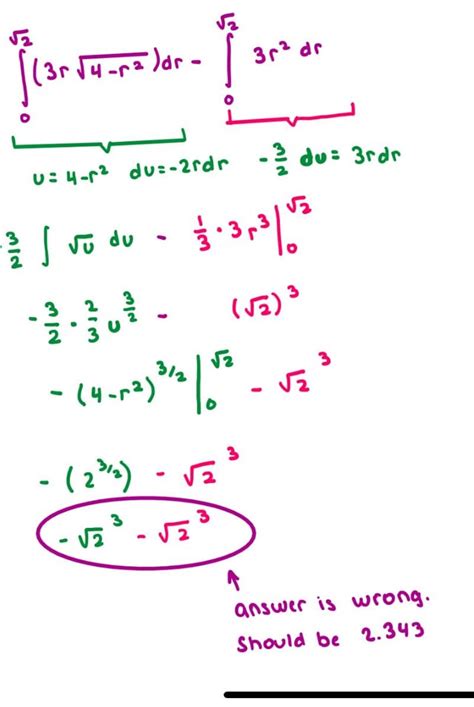 ∫₀^√2 (3r√(4-r²))dr - ∫₀^√2 3r² dr
u = 4-r² du=-2rdr -3/2 du = 3rdr
-3/2 ∫ √u du - 1/3 · 3r³|₀^√2
-3/2 · 2/3 u^3/2 - (√2)³
- (4-r²)^3/2 |₀^√2 - √2³
- (2^3/2) - √2³
- √2³ - √2³
answer is wrong.
Should be 2.343